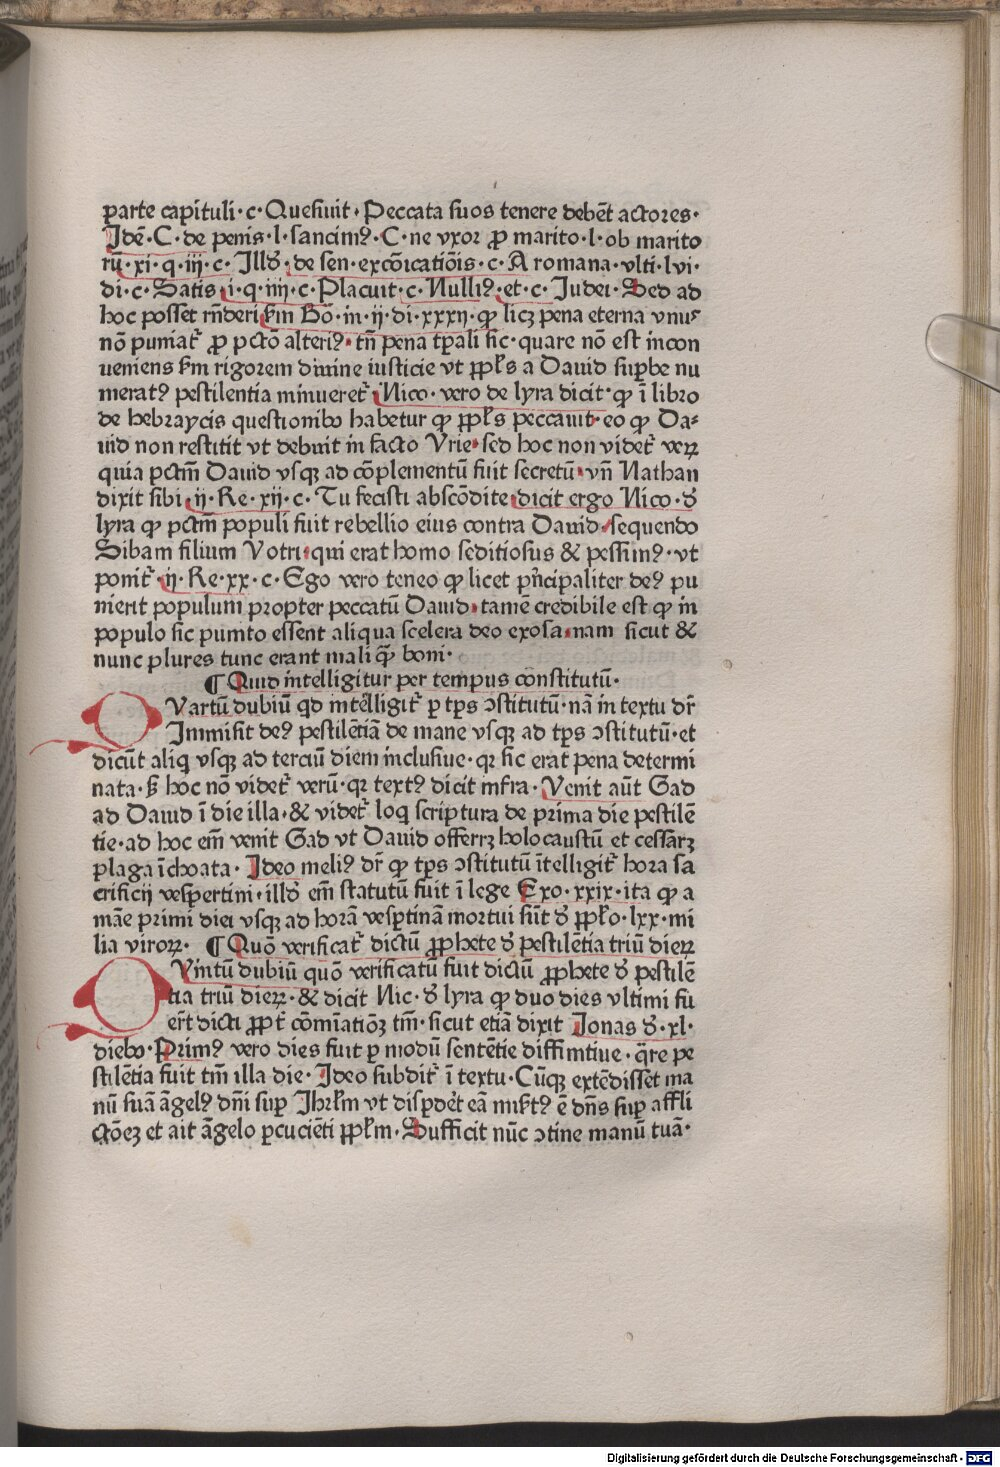 parte capituli·c·Quesiuit·Peccata suos tenere debēt actores·
Jdē·C·de penis·l·sancimꝰ·C·ne vxor ꝓ marito·l·ob marito
rū·xi·q·iij·c·Illď·de sen·excōicatiōis·c·A romana·vlti·lvi·
di·c·Satis·i·q·iiij·c·Placuit·c·Nulliꝰ·et·c·Judei·Sed ad
hoc posset rn̄deri ſm Bō·in·ij·di·xxxij·ꝙ licꝫ pena eterna vnus
nō puniat᷑ ꝓ pctō alteriꝰ·tn̄ pena tp̄ali sic·quare nō est incon
ueniens ſm rigorem diuine iusticie vt ppl̄s a Dauid suꝑbe nu
meratꝰ pestilentia minueret᷑·Nico·vero de lyra dicit·ꝙ ī libro
de hebraycis questionibꝫ habetur ꝙ ppl̄s peccauit·eo ꝙ Da⸗
uid non restitit vt debuit in facto Vrie·sed hoc non videt᷑ veꝝ
quia pctm̄ Dauid vsqꝫ ad cōplementū fuit secretū·vn̄ Nathan
dixit sibi·ij·Re·xij·c·Tu fecisti abscōdite·dicit ergo Nico·ď
lyra ꝙ pctm̄ populi fuit rebellio eius contra Dauid·sequendo
Sibam filium Votri·qui erat homo seditiosus & pessimꝰ·vt
ponit᷑·ij·Re·xx·c·Ego vero teneo ꝙ licet pn̄cipaliter deꝰ pu
nierit populum propter peccatū Dauid·tamē credibile est ꝙ in
populo sic punito essent aliqua scelera deo exosa·nam sicut &
nunc plures tunc erant mali qͣ̄ boni·
¶ Quid intelligitur per tempus cōnstitutū·
QVartū dubiū qd intēlligit᷑ ꝑ tp̄s ↄstitutū·nā in textu dr̄
Jmmisit deꝰ pestilētiā de mane vsqꝫ ad tp̄s ↄstitutū·et
dicūt aliq vsqꝫ ad terciū diem inclusiue·qꝛ sic erat pena determi
nata·ſꝫ hoc nō videt᷑ verū·qꝛ textꝰ dicit infra·Venit aūt Gad
ad Dauid ī die illa·& videt᷑ loq scriptura de prima die pestilē
tie·ad hoc em̄ venit Gad vt Dauid offerrꝫ holocaustū et cessarꝫ
plaga īchoata·Jdeo meliꝰ dr̄ ꝙ tp̄s ↄstitutū ītelligit᷑ hora sa
crificij vesꝑertini·illď em̄ statutū fuit ī lege Exo·xxix·ita ꝙ a
māe primi diei vsqꝫ ad horā vesꝑtinā mortui sūt ď ppl̄o·lxx·mi
lia viroꝝ· ¶ Quō verificat᷑ dictū ꝓphete ď pestilētia triū dieꝝ
QVintū dubiū quō verificatū fuit dictū ꝓphete ď pestilē
tia triū dieꝝ·& dicit Nic·ď lyra ꝙ duo dies vltimi fu
er̄t dicti ꝓpt̄ cōmīatiōꝫ tm̄·sicut etiā dixit Jonas ď·xl·
diebꝫ·Primꝰ vero dies fuit ꝑ modū sentētie diffinitiue·q̄re pe
stilētia fuit tm̄ illa die·Jdeo subdit᷑ ī textu·Cūqꝫ extēdisset ma
nū suā āgelꝰ dn̄i suꝑ Jhrl̄m vt disꝑdēt eā misertꝰ ē dn̄s suꝑ affli
ctōeꝫ et ait āgelo ꝑcuciēti ppl̄m·Sufficit nūc ↄtine manū tuā·
Digitalisierung gefördert durch die Deutsche Forschungsgemeinschaft - DFG